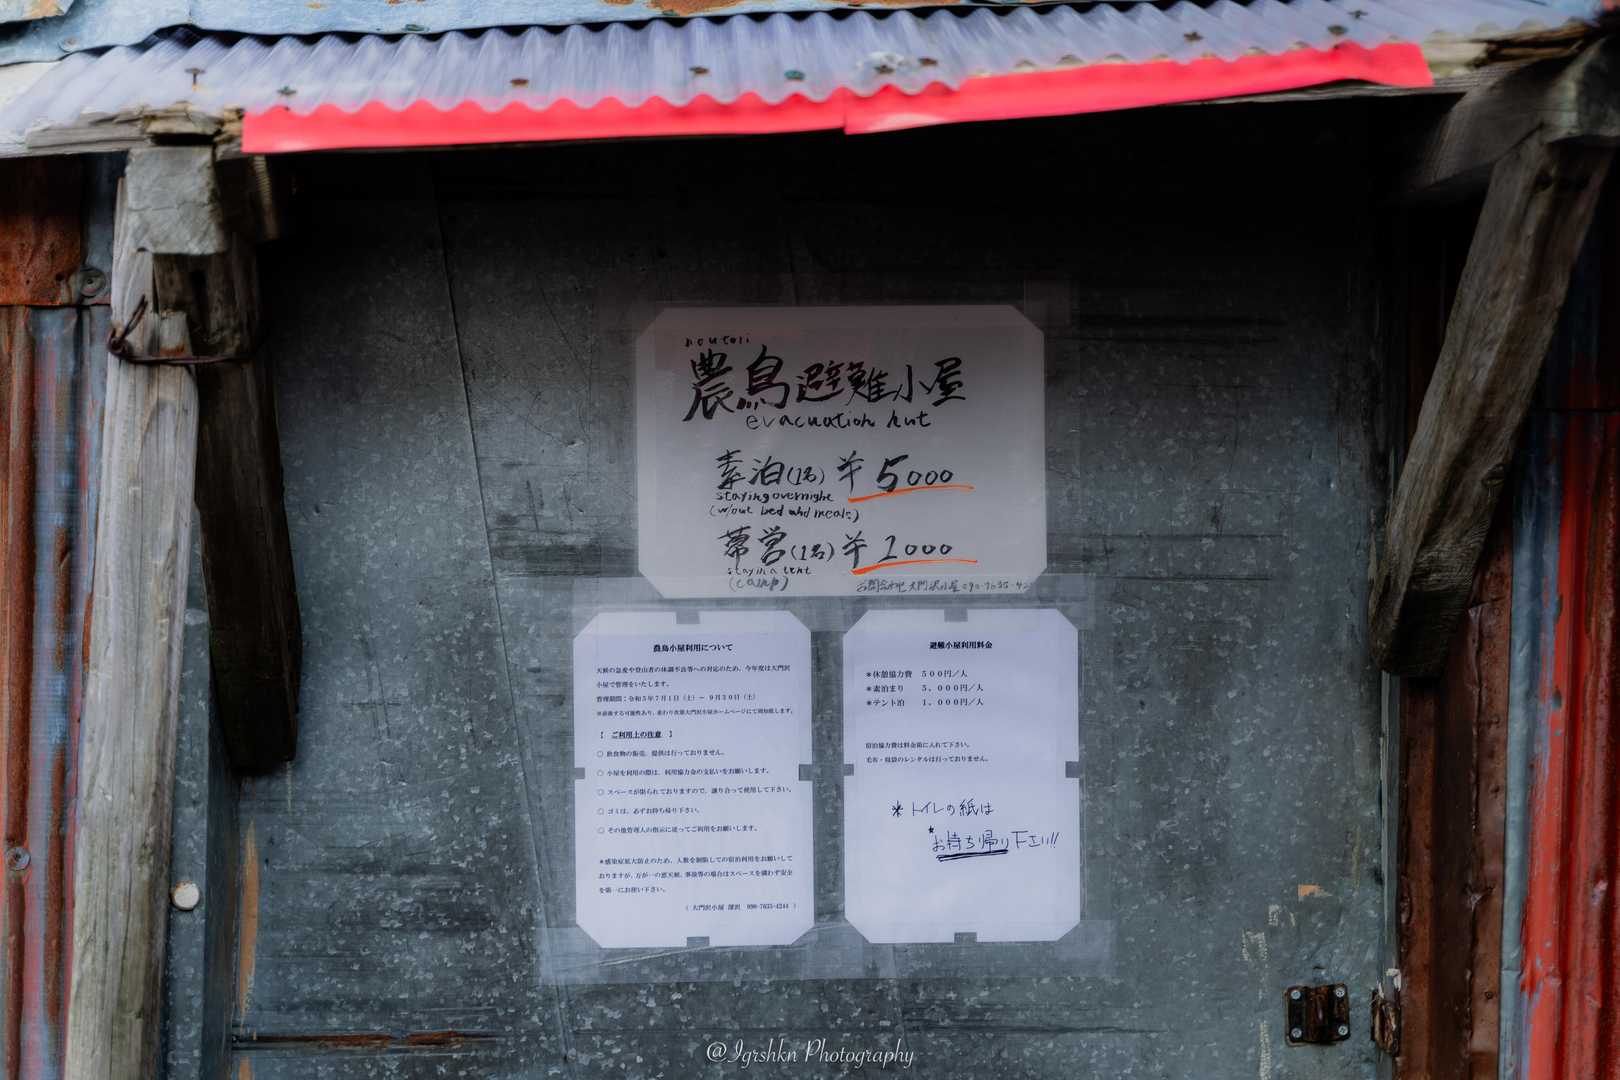 noutori
農鳥避難小屋
evacuation hut
素泊(1名) ¥5000
staying overnight
(w/out bed and meals)
幕営(1名) ¥1000
stay in a tent
(camp)
大門沢小屋 090-7635-42
農鳥小屋利用について
天候の急変や登山者の体調不良等への対応のため、今年度は大門沢
小屋で管理をいたします。
管理期間：令和5年7月1日（土）～ 9月30日（土）
※前後する可能性あり。変わり次第大門沢小屋ホームページにて周知致します。
【 ご利用上の注意 】
〇 飲食物の販売、提供は行っておりません。
〇 小屋を利用の際は、利用協力金の支払いをお願いします。
〇 スペースが限られておりますので、譲り合って使用して下さい。
〇 ゴミは、必ずお持ち帰り下さい。
〇 その他管理人の指示に従ってご利用をお願いします。
＊感染症拡大防止のため、人数を制限しての宿泊利用をお願いして
おりますが、万が一の悪天候、事故等の場合はスペースを構わず安全
を第一にお使い下さい。
（ 大門沢小屋 深沢 090-7635-4244 ）
避難小屋利用料金
＊休憩協力費 ５００円／人
＊素泊まり ５，０００円／人
＊テント泊 １，０００円／人
宿泊協力費は料金箱に入れて下さい。
毛布・寝袋のレンタルは行っておりません。
＊トイレの紙は
お持ち帰り下さい!!
@Igrshkn Photography